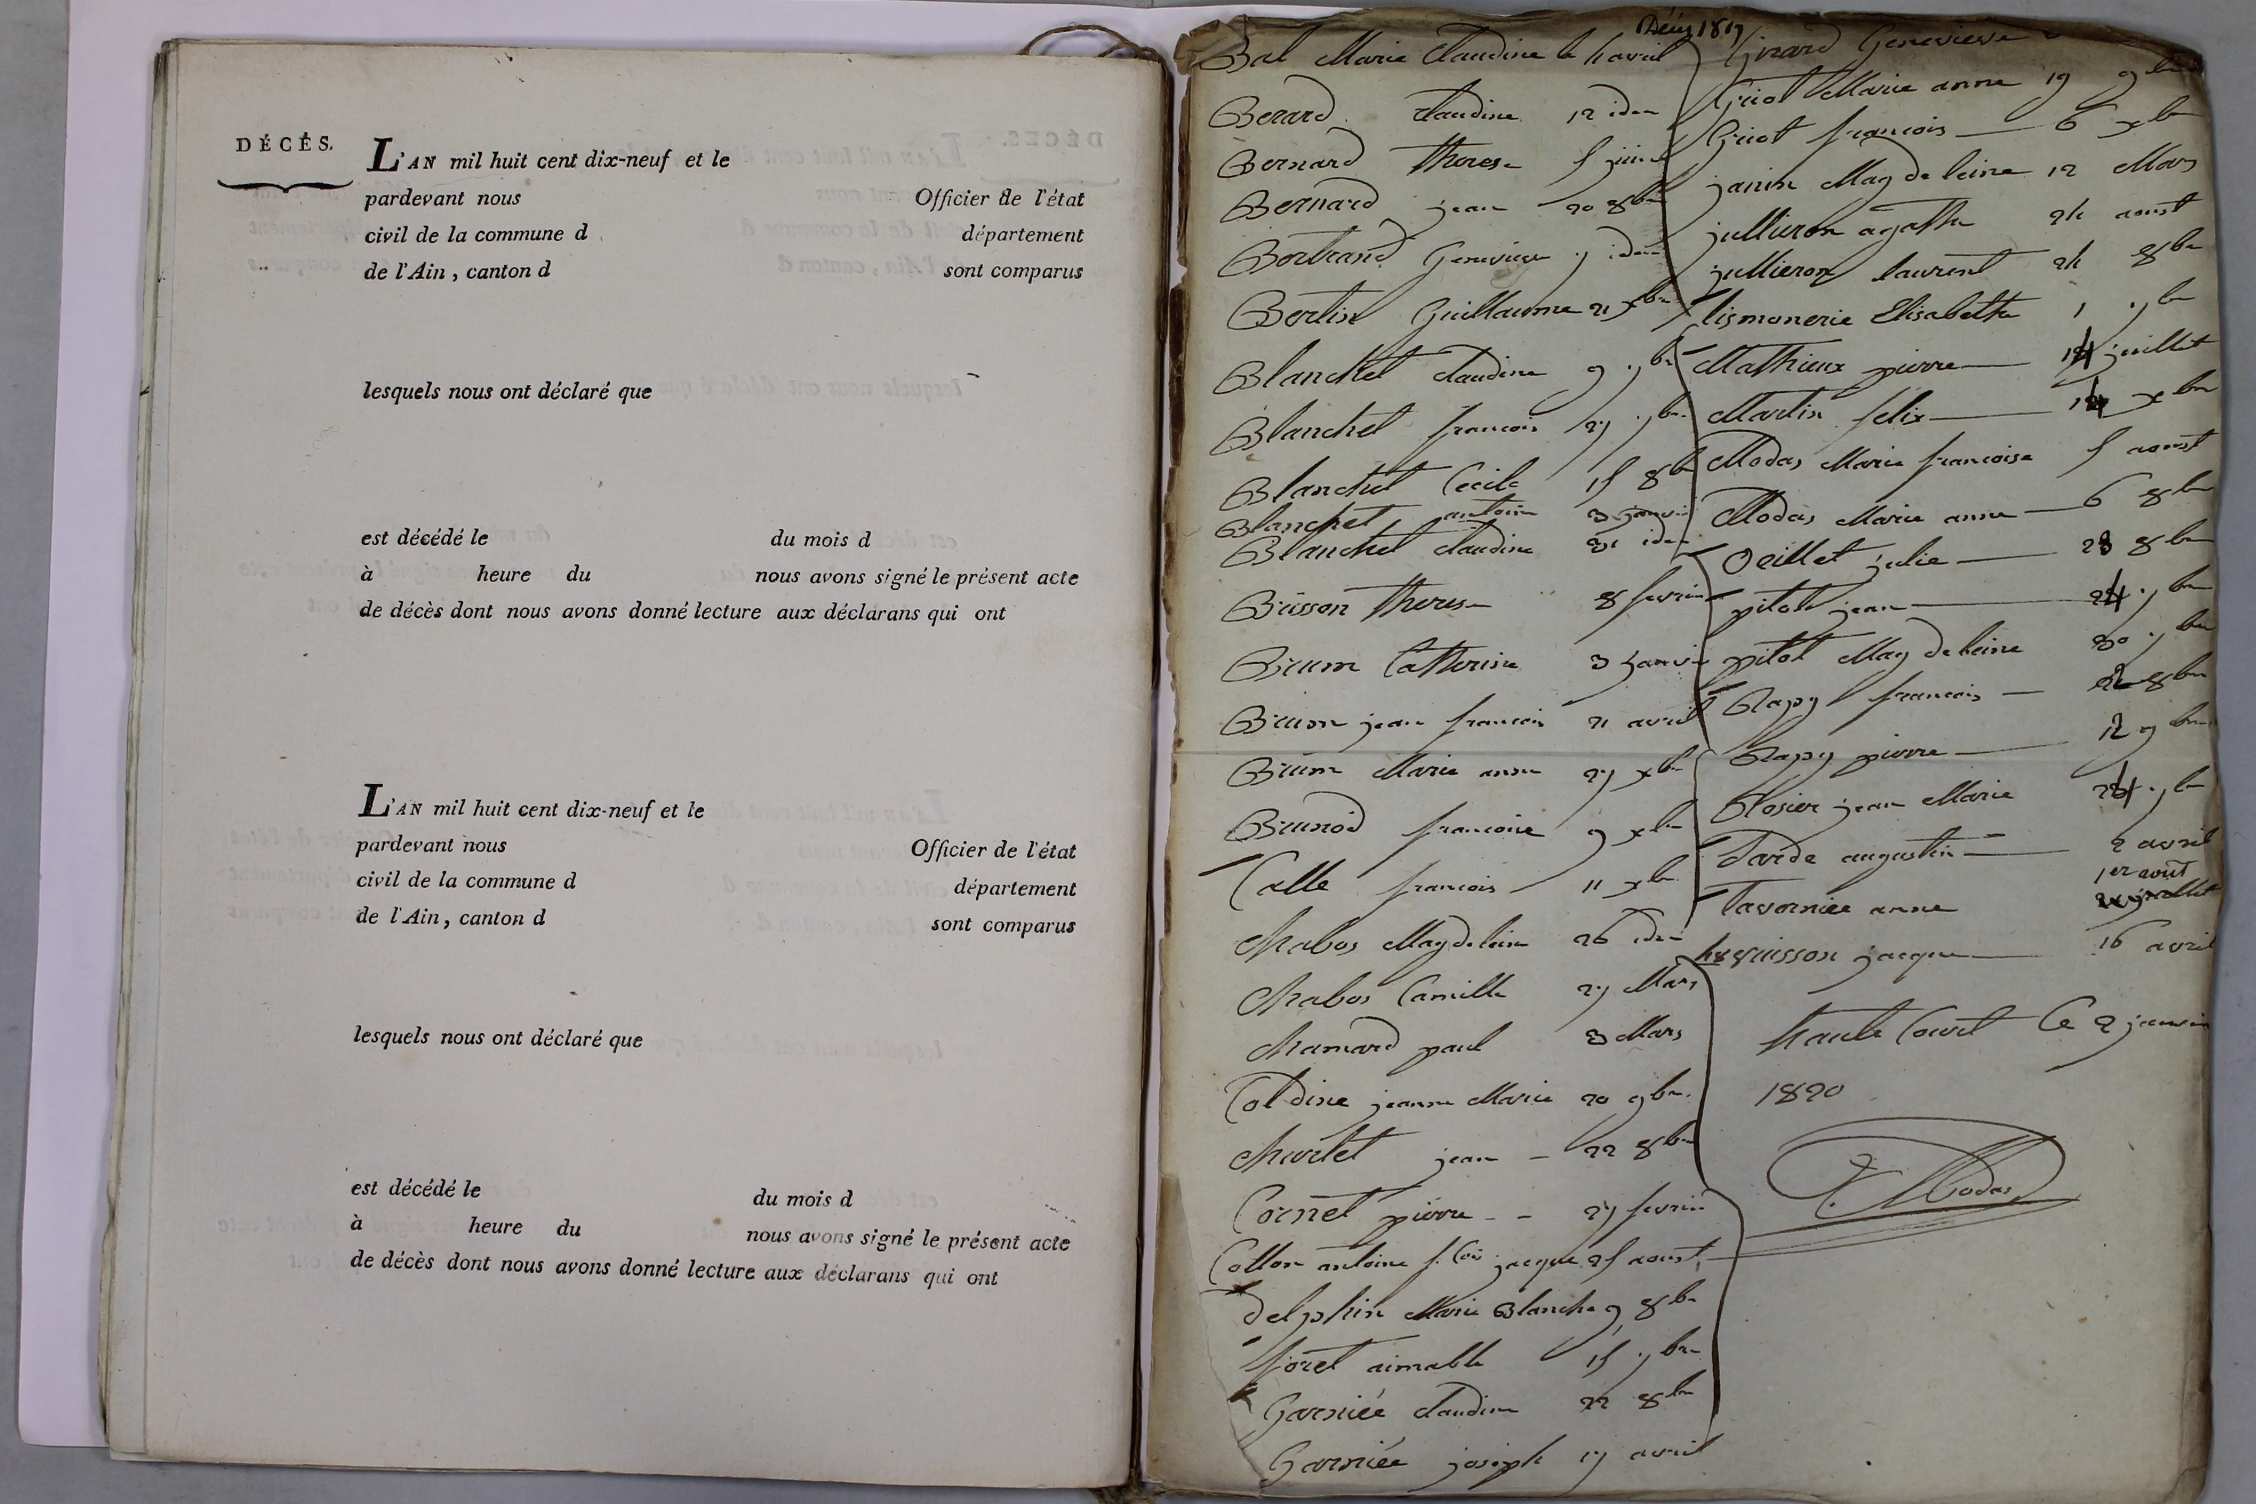 DÉCÈS.
L'AN mil huit cent dix-neuf et le
pardevant nous Officier de l'état
civil de la commune d département
de l'Ain, canton d sont comparus
lesquels nous ont déclaré que
est décédé le du mois d
à heure du nous avons signé le présent acte
de décès dont nous avons donné lecture aux déclarans qui ont
L'AN mil huit cent dix-neuf et le
pardevant nous Officier de l'état
civil de la commune d département
de l'Ain, canton d sont comparus
lesquels nous ont déclaré que
est décédé le du mois d
à heure du nous avons signé le présent acte
de décès dont nous avons donné lecture aux déclarans qui ont
Décès 1819
Bal Marie Claudine le 4 avril
Berard Claudine 12 idem
Bernard therese 5 juin
Bernard jean 20 8bre
Bertrand Genevieve 7 idem
Bertin Guillaume 21 xbre
Blanchet Claudine 9 7bre
Blanchet francois 27 7bre
Blanchet Cecile 15 8bre
Blanchet antoine 3 janvier
Blanchet Claudine 31 idem
Brisson therese 8 fevrier
Brum Catherine 3 janvier
Brum jean francois 21 avril
Brum Marie anne 27 xbre
Brunod francoise 9 xbre
Calle francois 11 xbre
Chabos Magdeleine 26 idem
Chabos Camille 27 Mars
Chamard paul 3 Mars
Coldine jeanne Marie 20 9bre
Churlet jean 22 8bre
Cornet pierre 27 fevrier
Collon antoine f. Cois jacque 25 aoust
Delphin Marie Blanche 9 8bre
foret aimable 15 7bre
Garniée Claudine 22 8bre
Garniée joseph 17 avril
Girard Genevieve
Griot Marie anne 19 9bre
Griot francois 6 xbre
janin Magdeleine 12 Mars
jullieron agathe 24 aoust
jullieron laurent 24 8bre
lismonerie Elisabethe 1 7bre
Mathieux pierre 14 juillet
Martin felix 14 xbre
Modas Marie francoise 5 aoust
Modas Marie anne 6 8bre
Oeillet julie 23 8bre
pitot jean 24 7bre
pitot Magdeleine 30 7bre
Rapy francois 8bre
Rapy pierre 12 9bre
Rosier jean Marie 24 7bre
Tarde augustin 2 avril
1er aout
Taverniée anne
48 vuisson jacque 16 avril
haute Court Ce 2 janvier
1820
Modas